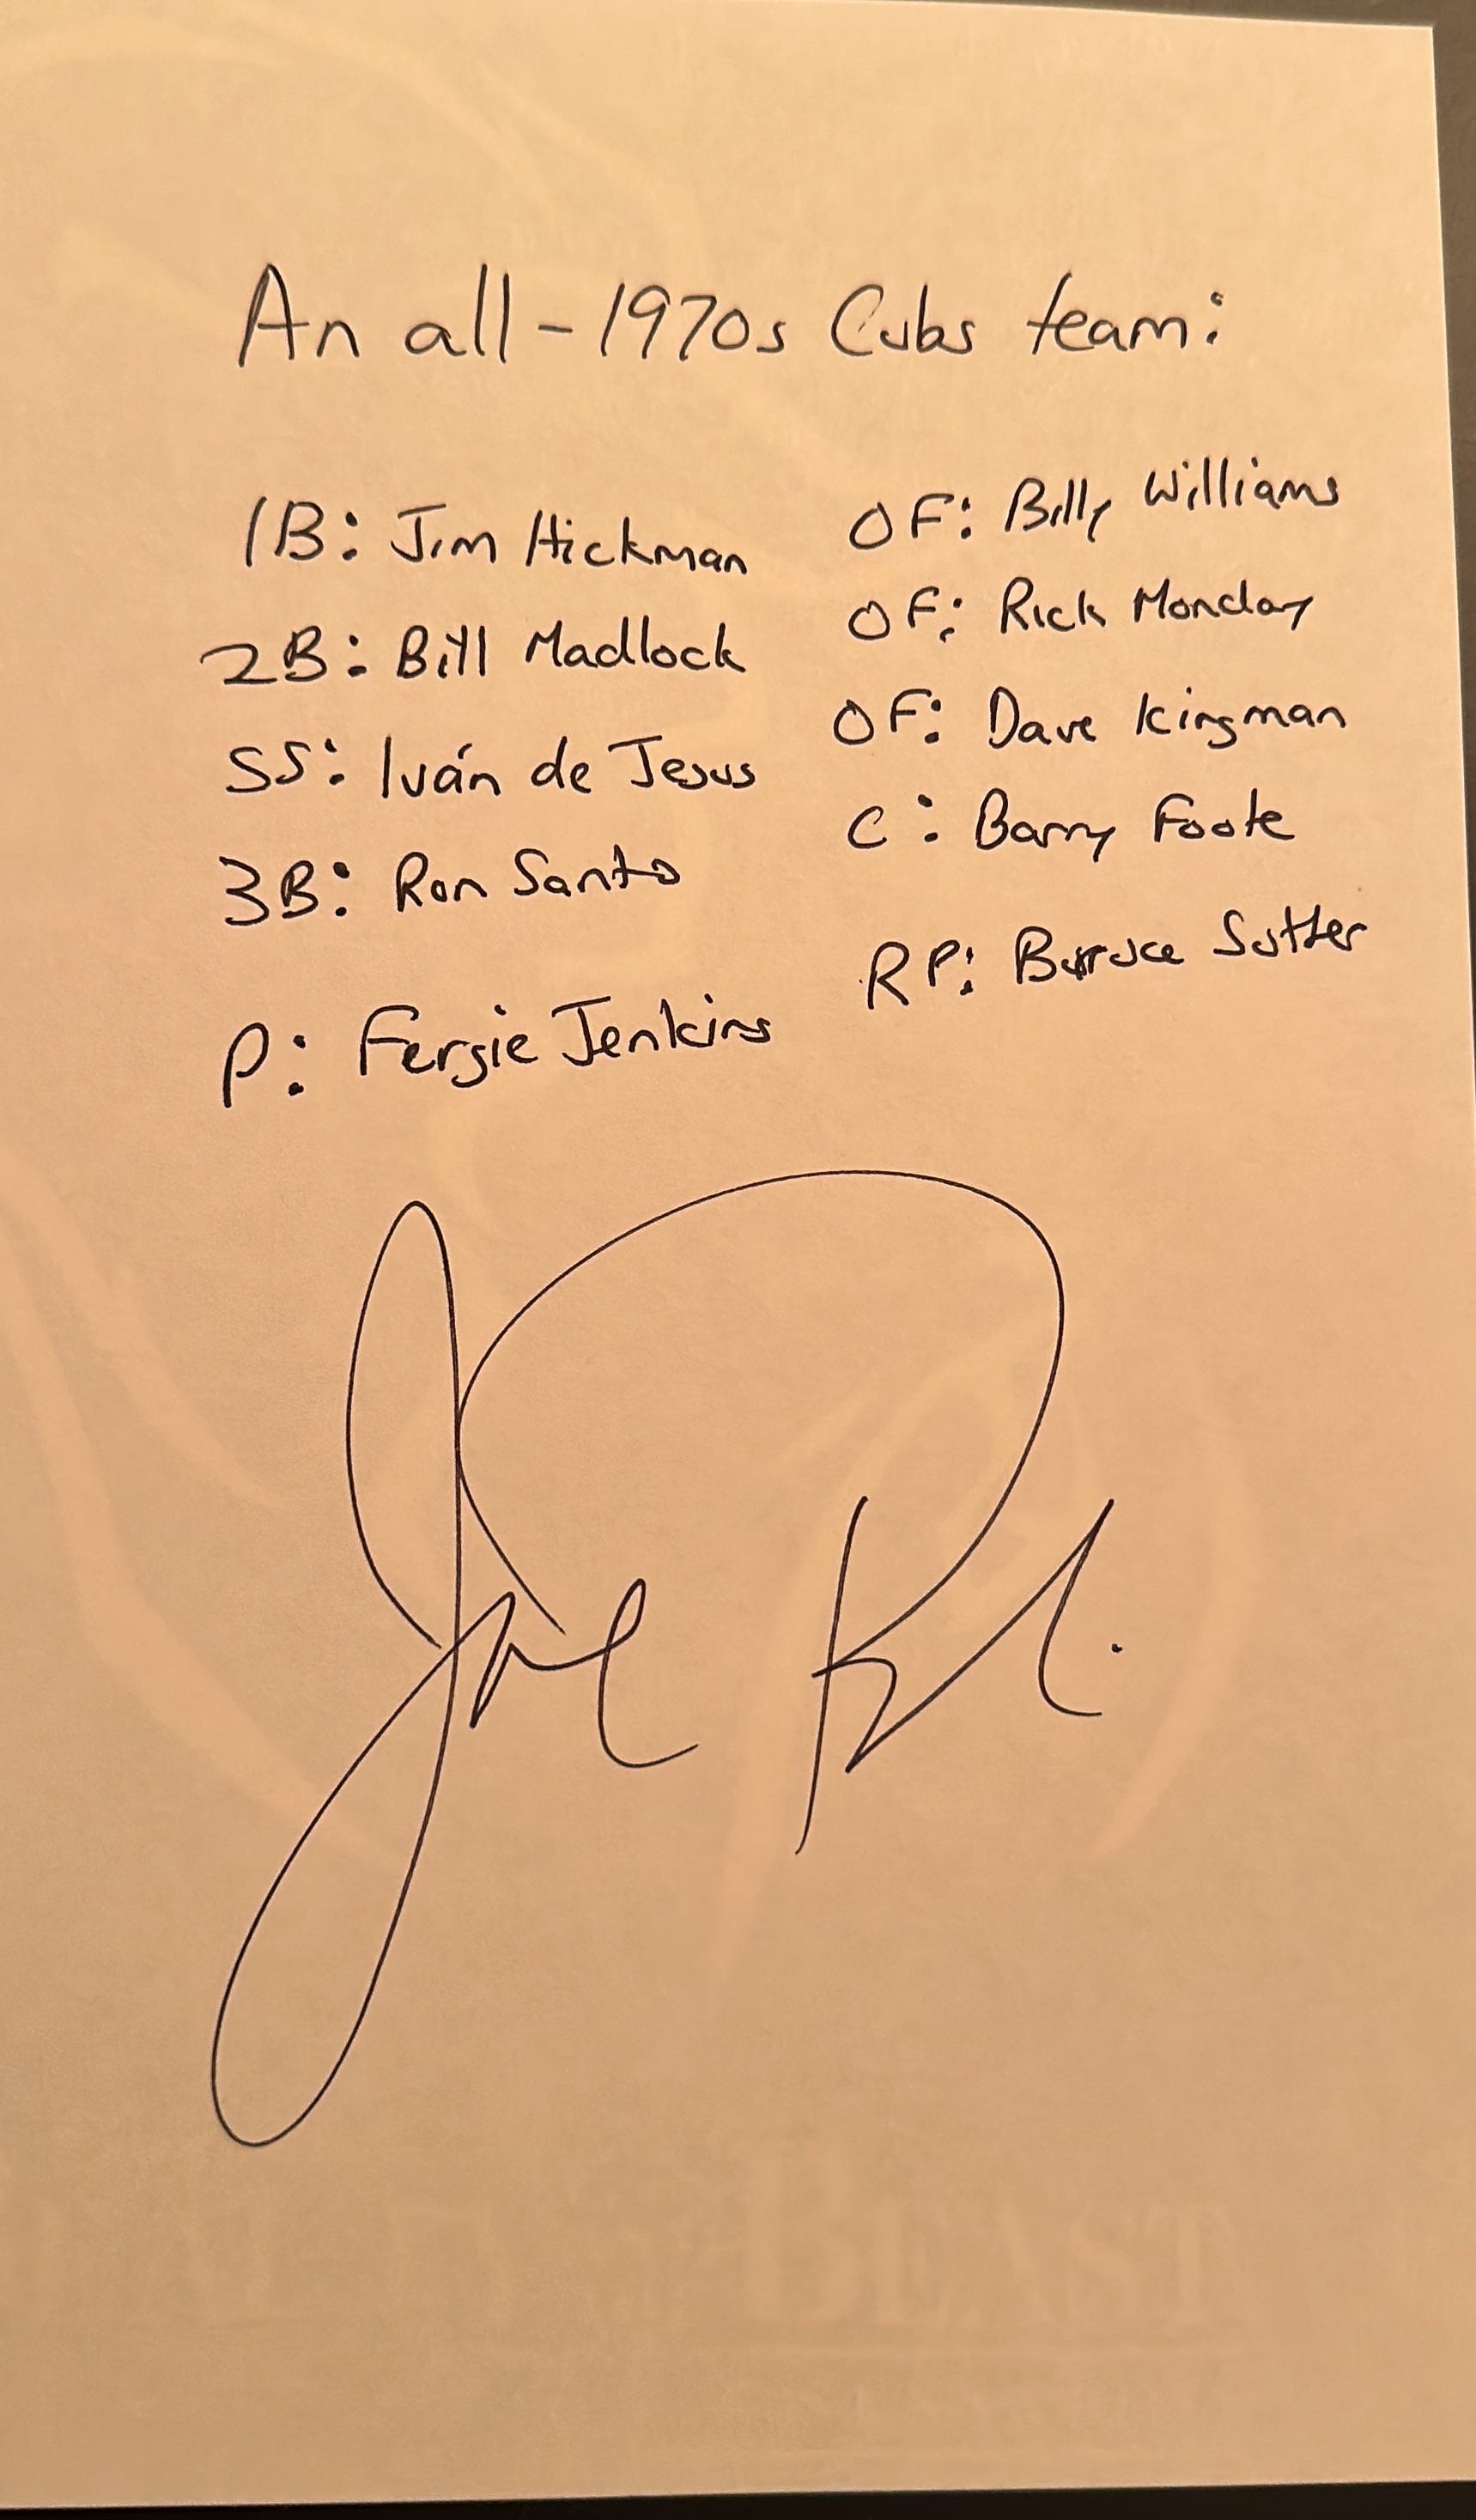 An all-1970s Cubs team:
1B: Jim Hickman
2B: Bill Madlock
SS: Iván de Jesus
3B: Ron Santo
P: Fergie Jenkins
OF: Billy Williams
OF: Rick Monday
OF: Dave Kingman
C: Barry Foote
RP: Bruce Sutter
Joe
BEAST